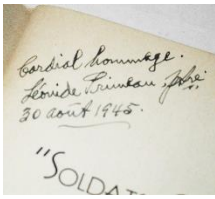 Cordial hommage.
Léonide Primeau, ptre
30 août 1945.
"SOLDATS